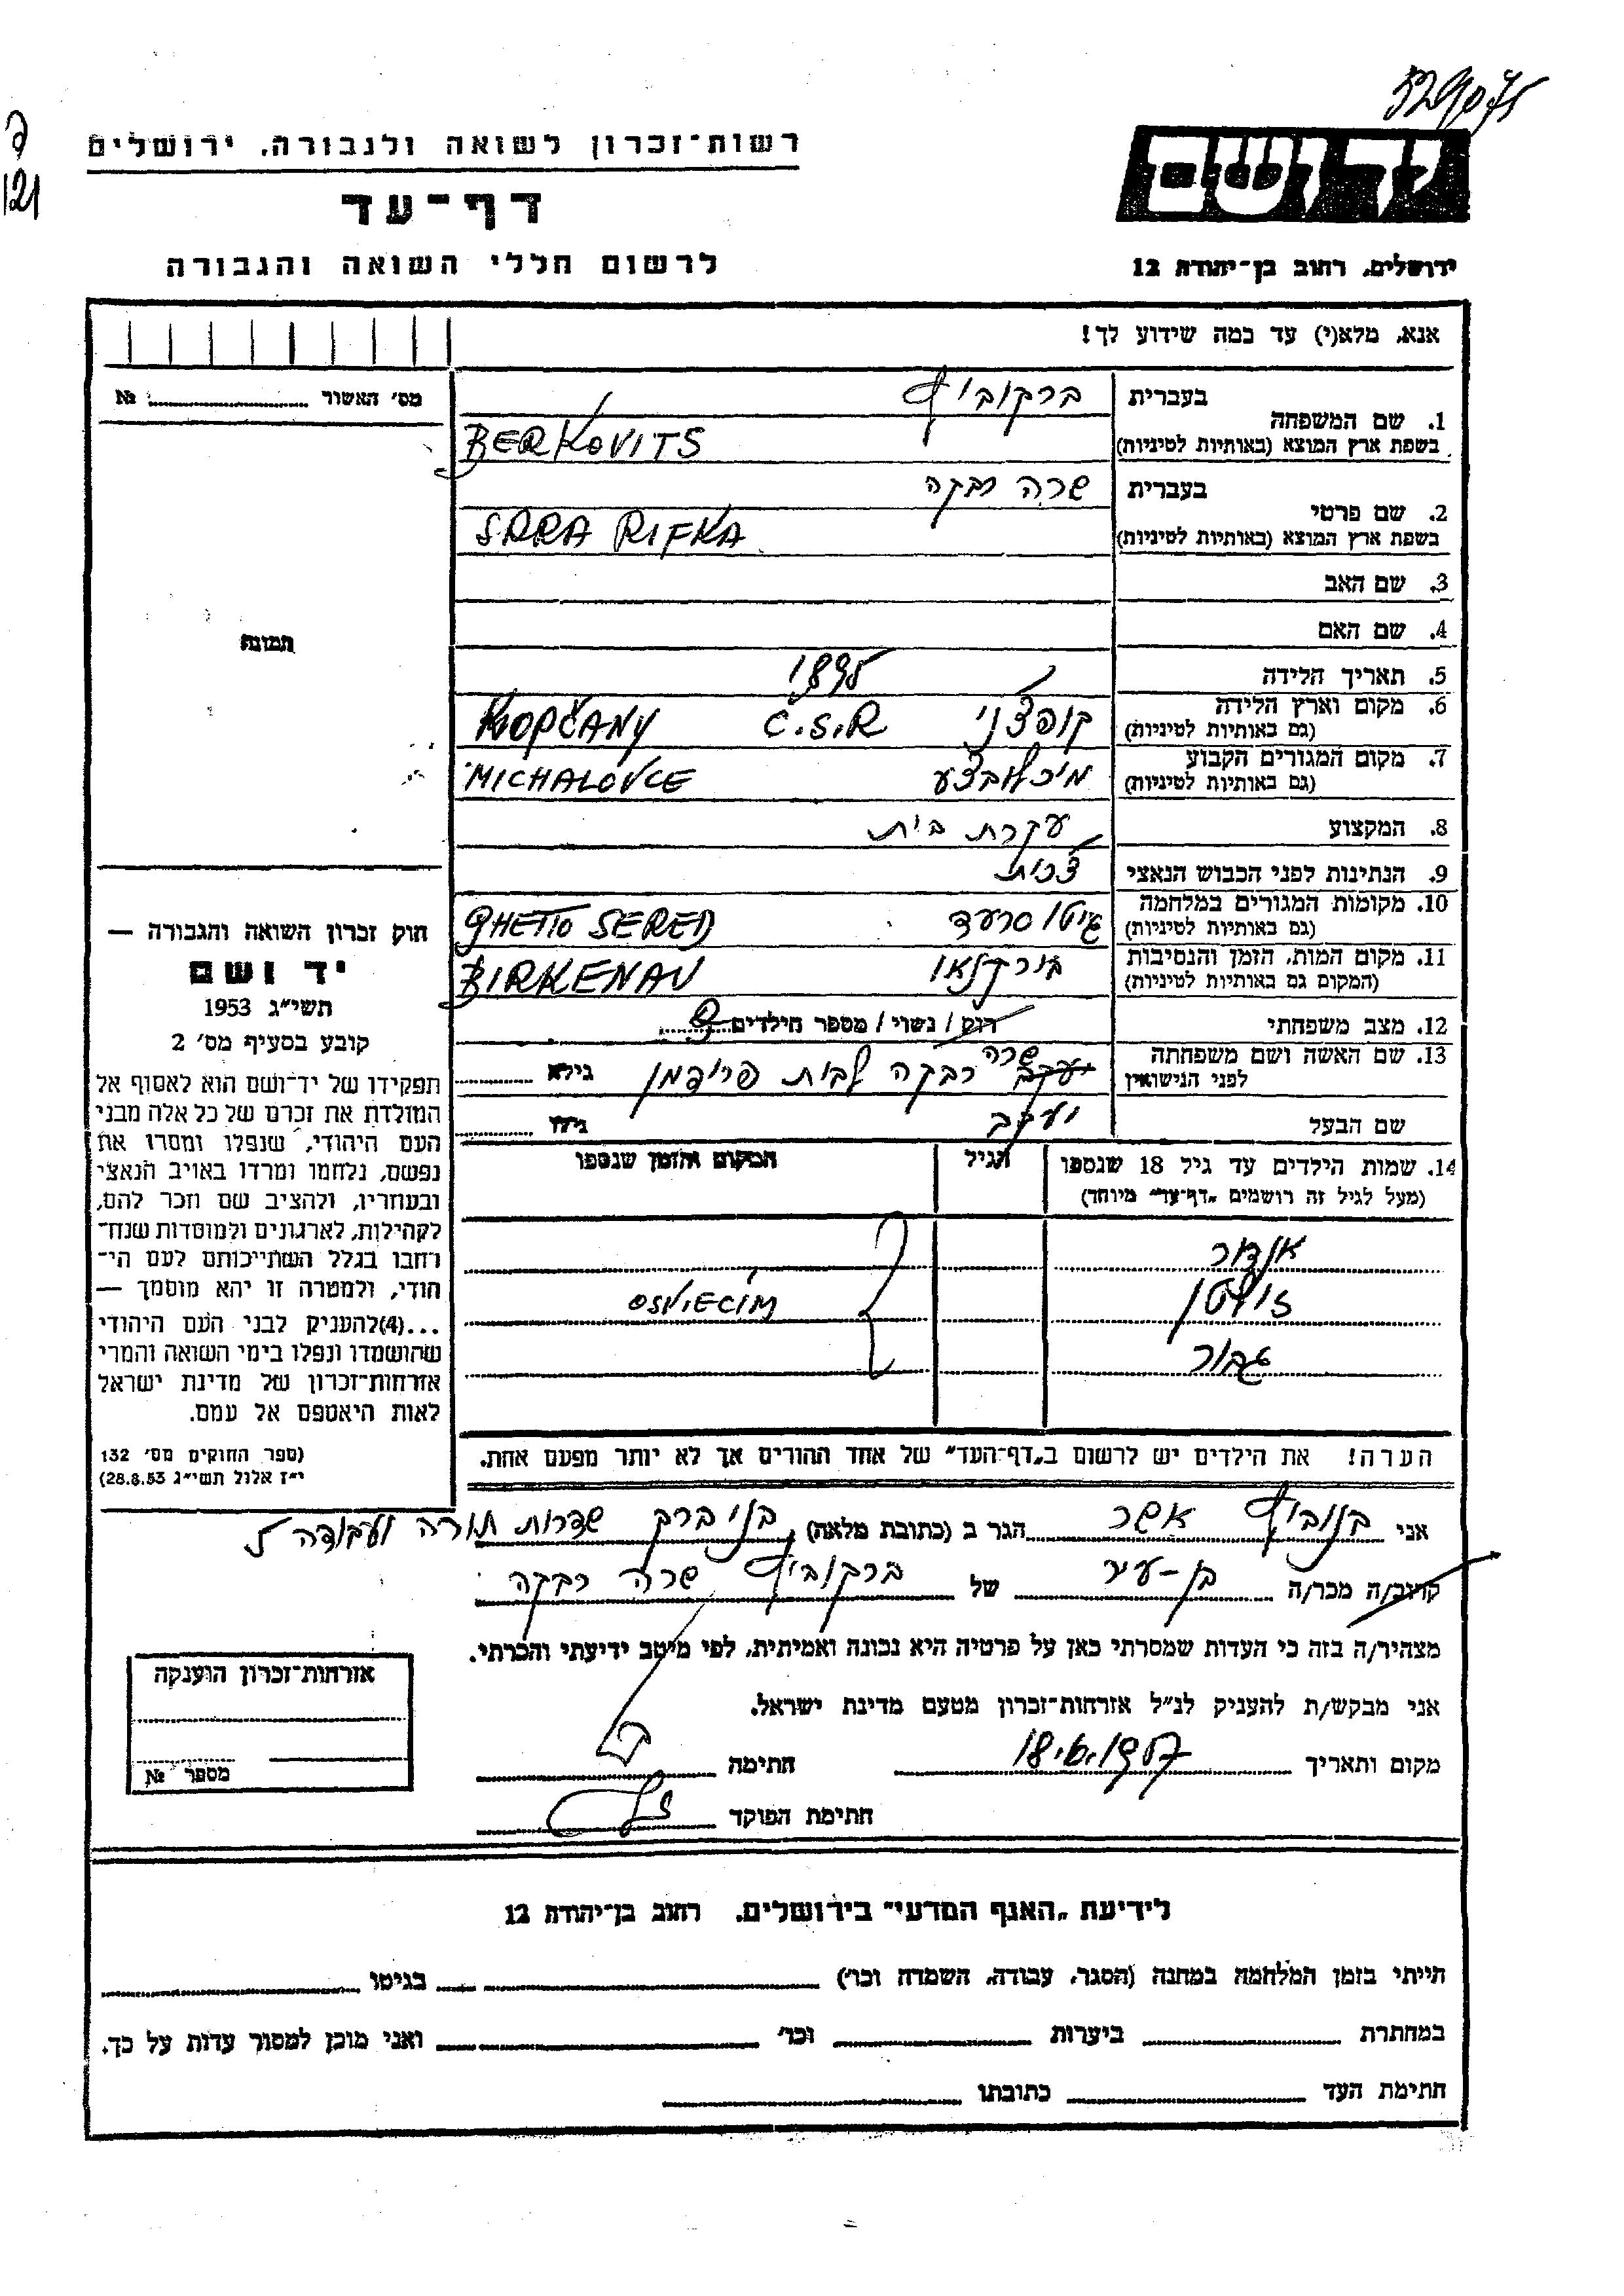 529075
ד
121
רשות־זכרון לשואה ולגבורה, ירושלים
דף־עד
לרשום חללי השואה והגבורה
יד ושם
ירושלים, רחוב בן־יהודה 12
אנא, מלא(י) עד כמה שידוע לך!
מס׳ האשור № 
תמונה
בעברית ברקוביץ
1. שם המשפחה
בשפת ארץ המוצא (באותיות לטיניות) BERKOVITS
בעברית שרה רבקה
2. שם פרטי
בשפת ארץ המוצא (באותיות לטיניות) SARA RIFKA
3. שם האב
4. שם האם
5. תאריך הלידה 1895
6. מקום וארץ הלידה (גם באותיות לטיניות) קופצ׳ני C.S.R KOPČANY
7. מקום המגורים הקבוע (גם באותיות לטיניות) מיכלובצע MICHALOVCE
8. המקצוע עקרת בית
9. הנתינות לפני הכבוש הנאצי צ׳כית
10. מקומות המגורים במלחמה (גם באותיות לטיניות) גיטו סרעד GHETTO SERED
11. מקום המות, הזמן והנסיבות (המקום גם באותיות לטיניות) בירקנאו BIRKENAU
12. מצב משפחתי רווק / נשוי / מספר הילדים
13. שם האשה ושם משפחתה לפני הנישואין יעקב שרה רבקה לבית פרידמן גילא
שם הבעל יעקב גילו
14. שמות הילדים עד גיל 18 שנספו הגיל המקום והזמן שנספו
(מעל לגיל זה רושמים „דף־עד״ מיוחד)
אנדור
זולטן OSWIECIM
טבור
הערה! את הילדים יש לרשום ב„דף־העד״ של אחד ההורים אך לא יותר מפעם אחת.
חוק זכרון השואה והגבורה —
יד ושם
תשי״ג 1953
קובע בסעיף מס׳ 2
תפקידו של יד־ושם הוא לאסוף אל
המולדת את זכרם של כל אלה מבני
העם היהודי, שנפלו ומסרו את
נפשם, נלחמו ומרדו באויב הנאצי
ובעוזריו, ולהציב שם וזכר להם,
לקהילות, לארגונים ולמוסדות שנח־
רחבו בגלל השתייכותם לעם הי־
הודי, ולמטרה זו יהא מוסמך —
...(4)להעניק לבני העם היהודי
שהושמדו ונפלו בימי השואה והמרי
אזרחות־זכרון של מדינת ישראל
לאות היאספם אל עמם.
(ספר החוקים מס׳ 132
י״ז אלול תשי״ג 28.8.53)
אני אשר הגר ב (כתובת מלאה) בני ברק שדרות תורה ועבודה 5
קרוב/ה מכר/ה בן-עיר של ברקוביץ שרה רבקה
מצהיר/ה בזה כי העדות שמסרתי כאן על פרטיה היא נכונה ואמיתית, לפי מיטב ידיעתי והכרתי.
אני מבקש/ת להעניק לנ״ל אזרחות־זכרון מטעם מדינת ישראל.
מקום ותאריך חתימה
חתימת הפוקד
אזרחות־זכרון הוענקה
מספר №
לידיעת „האגף המדעי״ בירושלים, רחוב בן־יהודה 12
הייתי בזמן המלחמה במחנה (הסגר, עבודה, השמדה וכו׳) בגיטו
במחתרת ביערות וכו׳ ואני מוכן למסור עדות על כך.
חתימת העד כתובתו